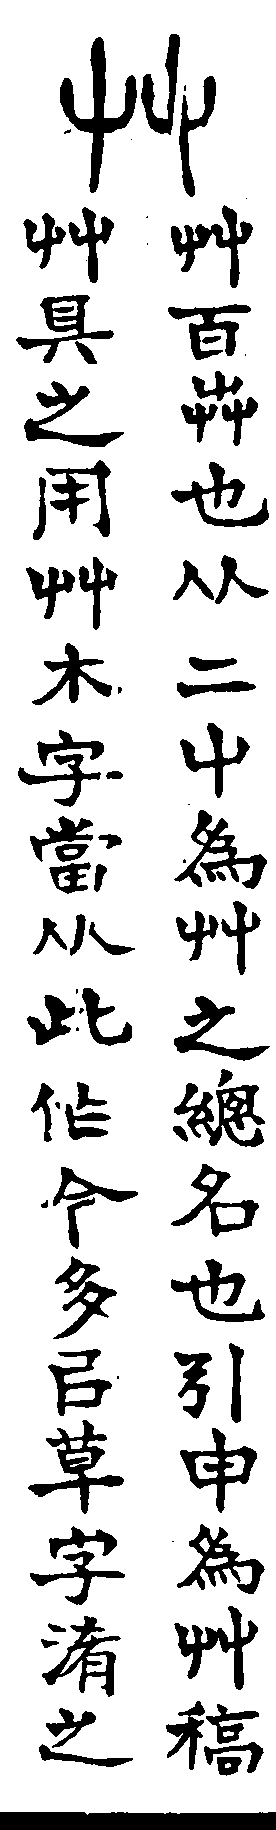 艸
艸百芔也从二屮為艸之總名也引申為艸稿
艸具之用艸木字當从此作今多㠯草字淆之